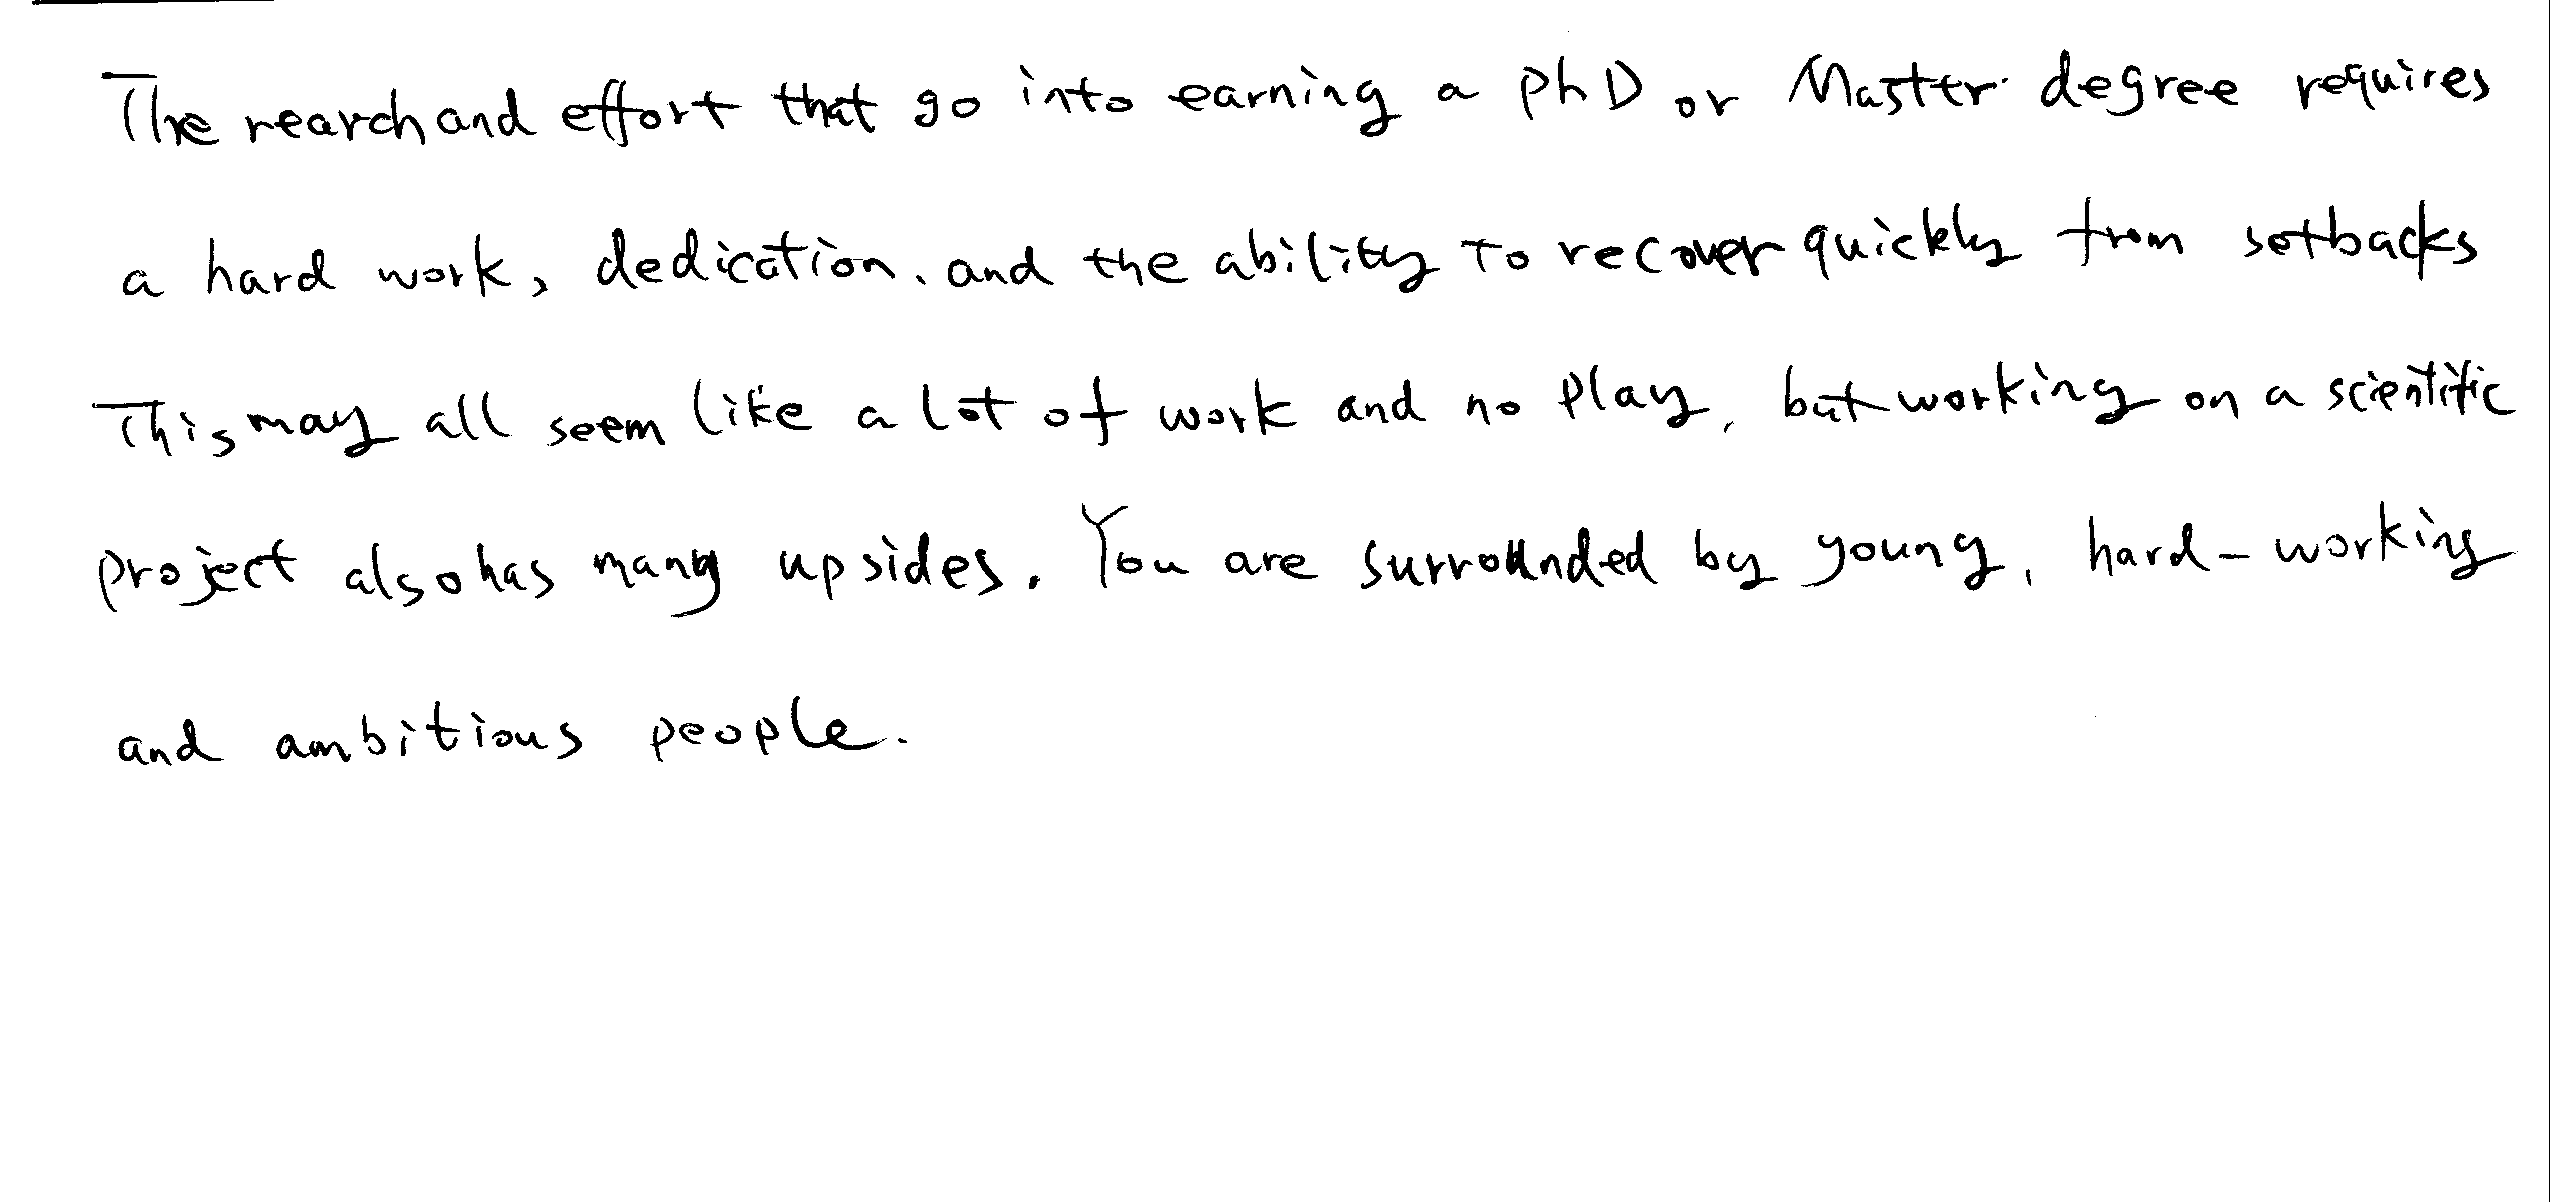 The rearch and effort that go into earning a PhD or Master degree requires
a hard work, dedication, and the ability to recover quickly from setbacks
This may all seem like a lot of work and no play, but working on a scientific
project also has many upsides. You are surrounded by young, hard-working
and ambitious people.